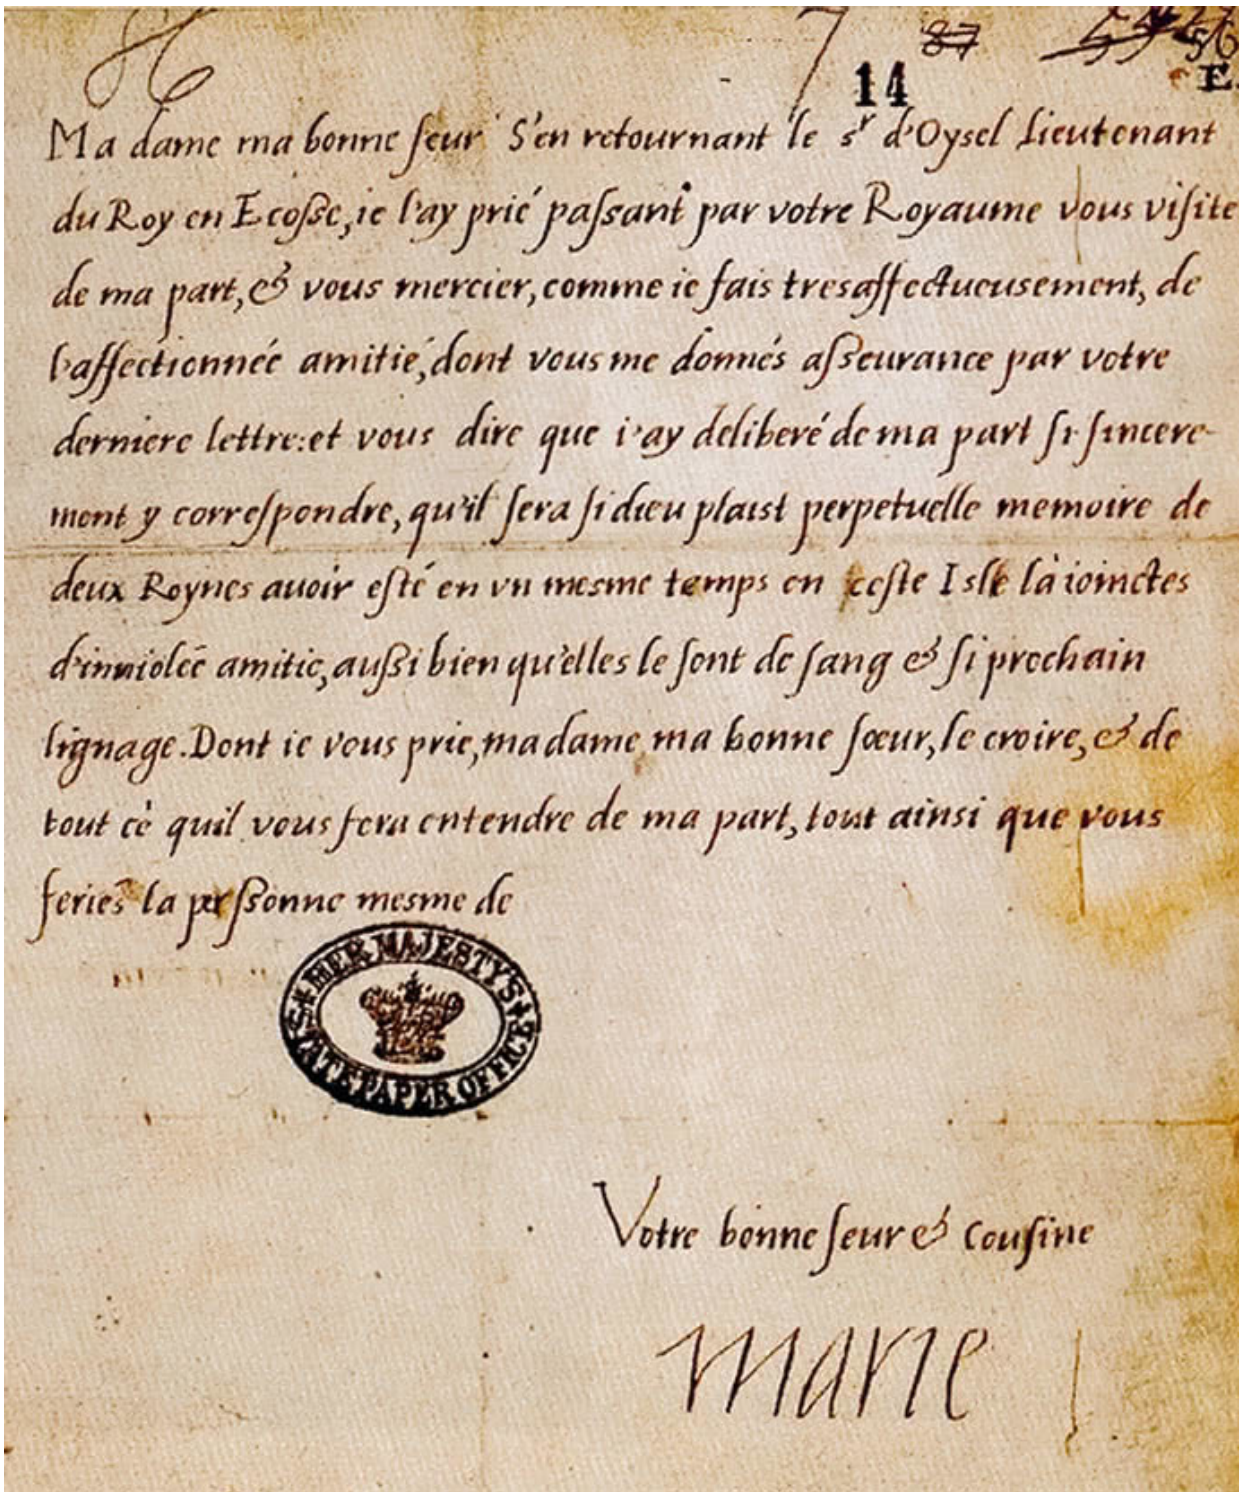 7 87
14 56
E.
Ma dame ma bonne ſeur S'en retournant le sʳ d'Oysel Lieutenant
du Roy en Ecoſse, ie l'ay prié paſsant par votre Royaume vous viſite
de ma part, & vous mercier, comme ie fais tresaffectueusement, de
l'affectionnée amitié, dont vous me donnés aſseurance par votre
derniere lettre: et vous dire que i'ay deliberé de ma part ſi ſincere-
ment y correſpondre, qu'il ſera ſi dieu plaist perpetuelle memoire de
deux Roynes auoir eſté en vn mesme temps en ceſte Isle là ioinctes
d'inuiolée amitie, auſsi bien qu'elles le ſont de ſang & ſi prochain
lignage. Dont ie vous prie, madame ma bonne ſœur, le croire, & de
tout cè quil vous fera entendre de ma part, tout ainsi que vous
feriés la perſsonne mesme de
HER MAJESTY'S
STATE PAPER OFFICE
Votre bonne ſeur & couſine
Marie